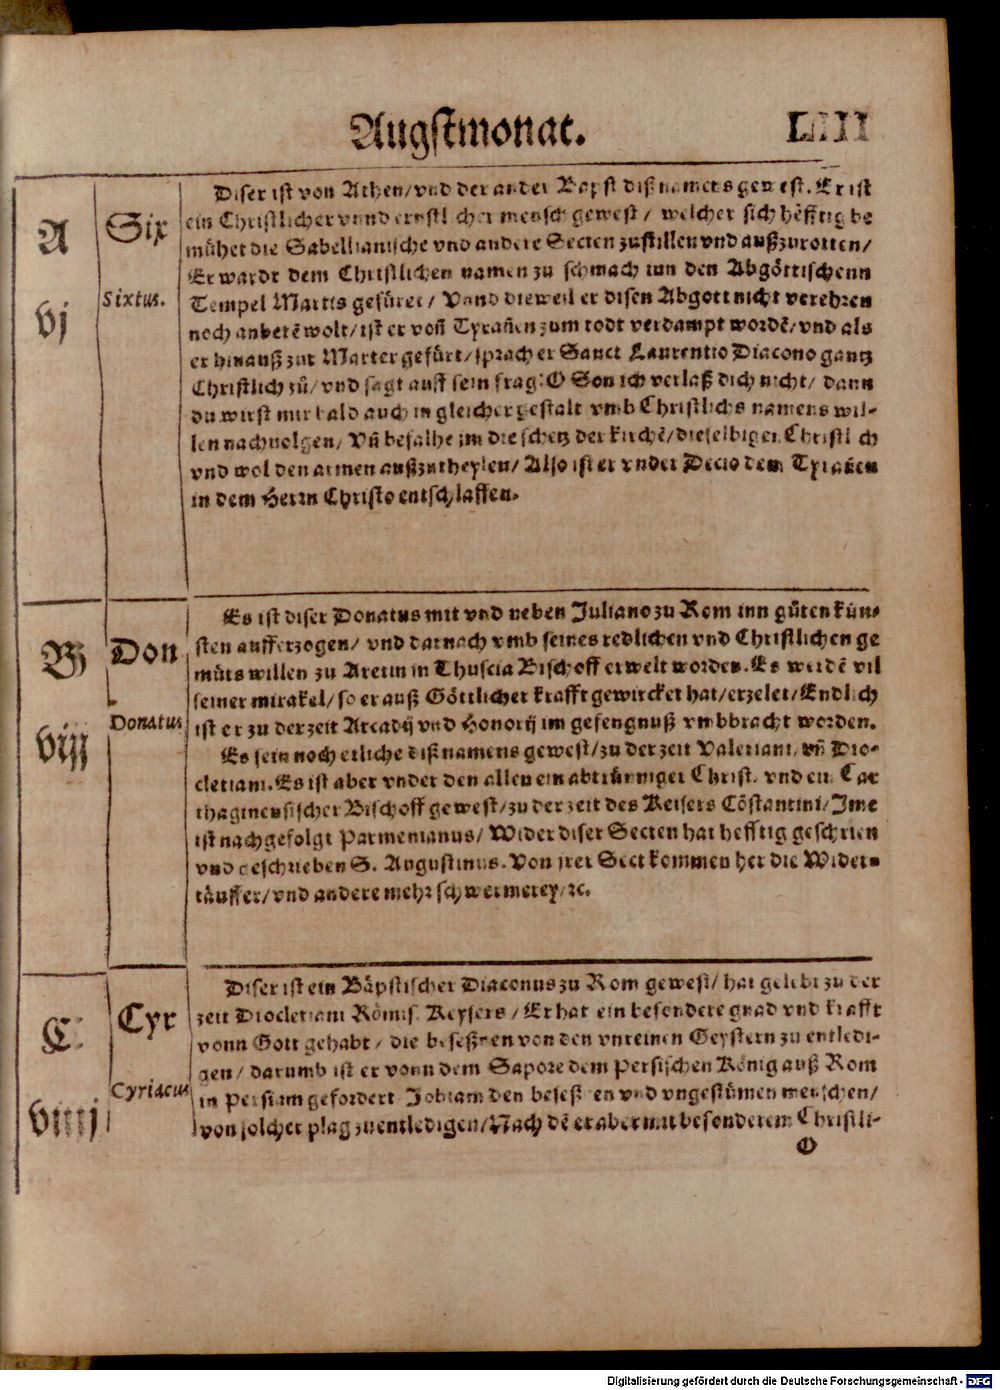 Augstmonat. LIII
A
vj
Six
Sixtus.
Diser ist von Athen/vnd der ander Bapst diß namens gewest. Er ist
ein Christlicher vnnd ernstlicher mensch gewest / welcher sich hefftig be
mühet die Sabellianische vnd andere Secten zustillen vnd außzurotten/
Er wardt dem Christlichen namen zu schmach inn den Abgöttischenn
Tempel Martis gefüret / Vnnd dieweil er disen Abgott nicht verehren
noch anbetẽ wolt/ ist er voñ Tyrañen zum todt verdampt wordẽ/ vnd als
er hinauß zur Marter gefürt/ sprach er Sanct Laurentio Diacono gantz
Christlich zů/ vnd sagt auff sein frag: O Son ich verlaß dich nicht/ dann
du wirst mir bald auch in gleicher gestalt vmb Christlichs namens wil-
len nachuolgen/ Vñ befalhe jm die schetz der kirchẽ/ dieselbigen Christlich
vnd wol den armen außzutheylen/ Also ist er vnder Decio dem Tyrañen
in dem Herrn Christo entschlaffen.
B
viij
Don
Donatus
Es ist diser Donatus mit vnd neben Juliano zu Rom inn gůten kün-
sten aufferzogen/ vnd darnach vmb seines redlichen vnd Christlichen ge
müts willen zu Aretin in Thuscia Bischoff erwelt worden. Es werdẽ vil
seiner mirakel/ so er auß Göttlicher krafft gewircket hat/ erzelet/ Endlich
ist er zu der zeit Arcadij vnd Honorij im gefengnuß vmbbracht worden.
Es sein noch etliche diß namens gewest/ zu der zeit Valeriani, vñ Dio-
cletiani. Es ist aber vnder den allen ein abtrünniger Christ. vnd ein Car
thaginensischer Bischoff gewest/ zu der zeit des Keisers Cõstantini/ Jme
ist nachgefolgt Parmenianus/ Wider diser Secten hat hefftig geschrien
vnd geschrieben S. Augustinus. Von jrer Sect kommen her die Wider-
täuffer/ vnd andere mehr schwermerey/ ꝛc.
C
viiij
Cyr
Cyriacus
Diser ist ein Bäpstischer Diaconus zu Rom gewest/ hat gelebt zu der
zeit Diocletiani Römis. Keysers / Er hat ein besondere gnad vnd krafft
vonn Gott gehabt / die beseßnen von den vnreinen Geystern zu entledi-
gen/ darumb ist er vonn dem Sapore dem Persischen König auß Rom
in Persiam gefordert Jobiam den besessnen vnd vngestümen menschen/
von solcher plag zu entledigen/ Nach dẽ er aber mit besonderem Christli-
O
Digitalisierung gefördert durch die Deutsche Forschungsgemeinschaft - DFG